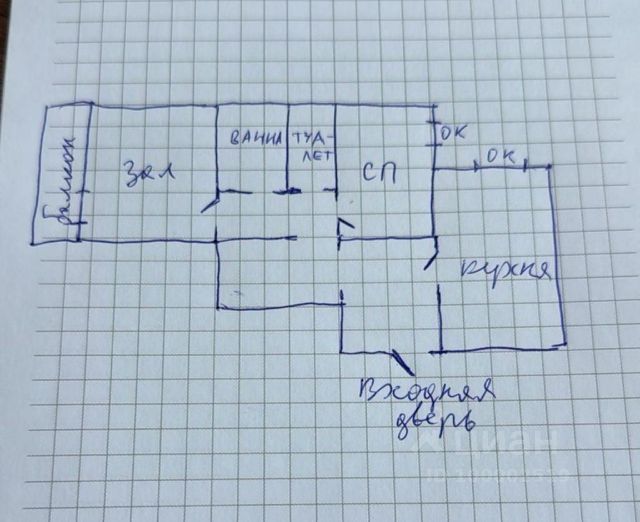 балкон
Зал
ВАННА
ТУА-
ЛЕТ
СП
ОК
ОК
кухня
Входная
дверь
ЦИАН